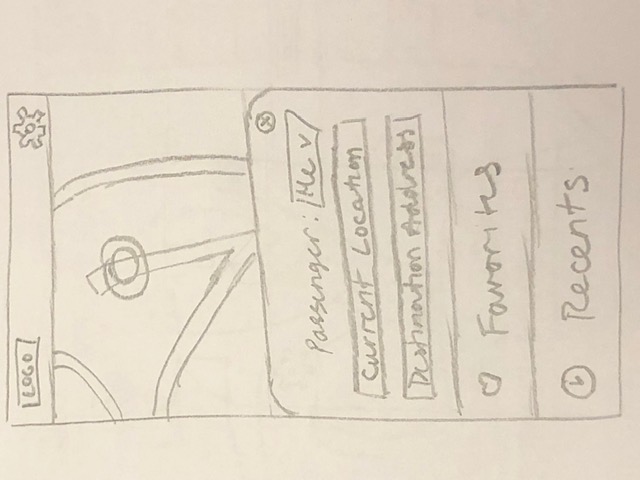 LOGO
Passenger: Me v
Current Location
Destination Address
Favorites
Recents